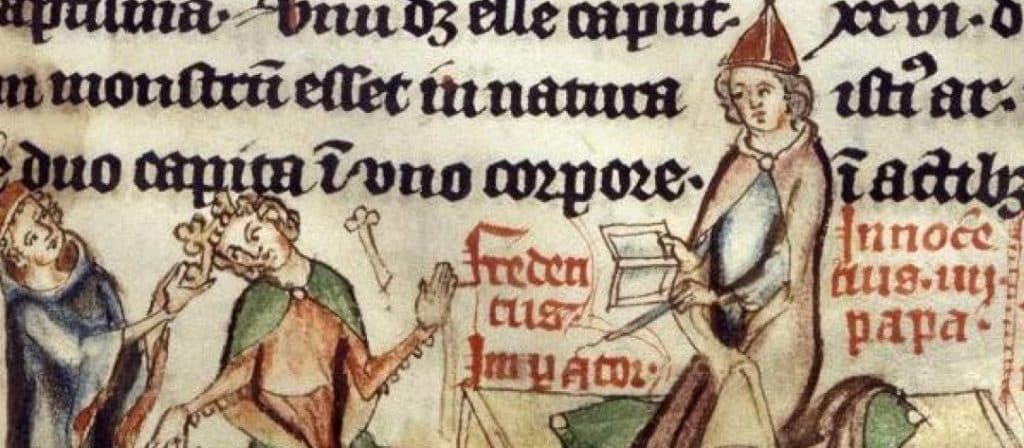 aptisma. Vnū dꝫ esse caput. xxvi. d
m monstrū esset in natura istiꝰ ar.
e duo capita ī vno corpore. ī actibꝫ
Frederi
cus
Imꝑator.
Innocē
cius. iiij.
papa.